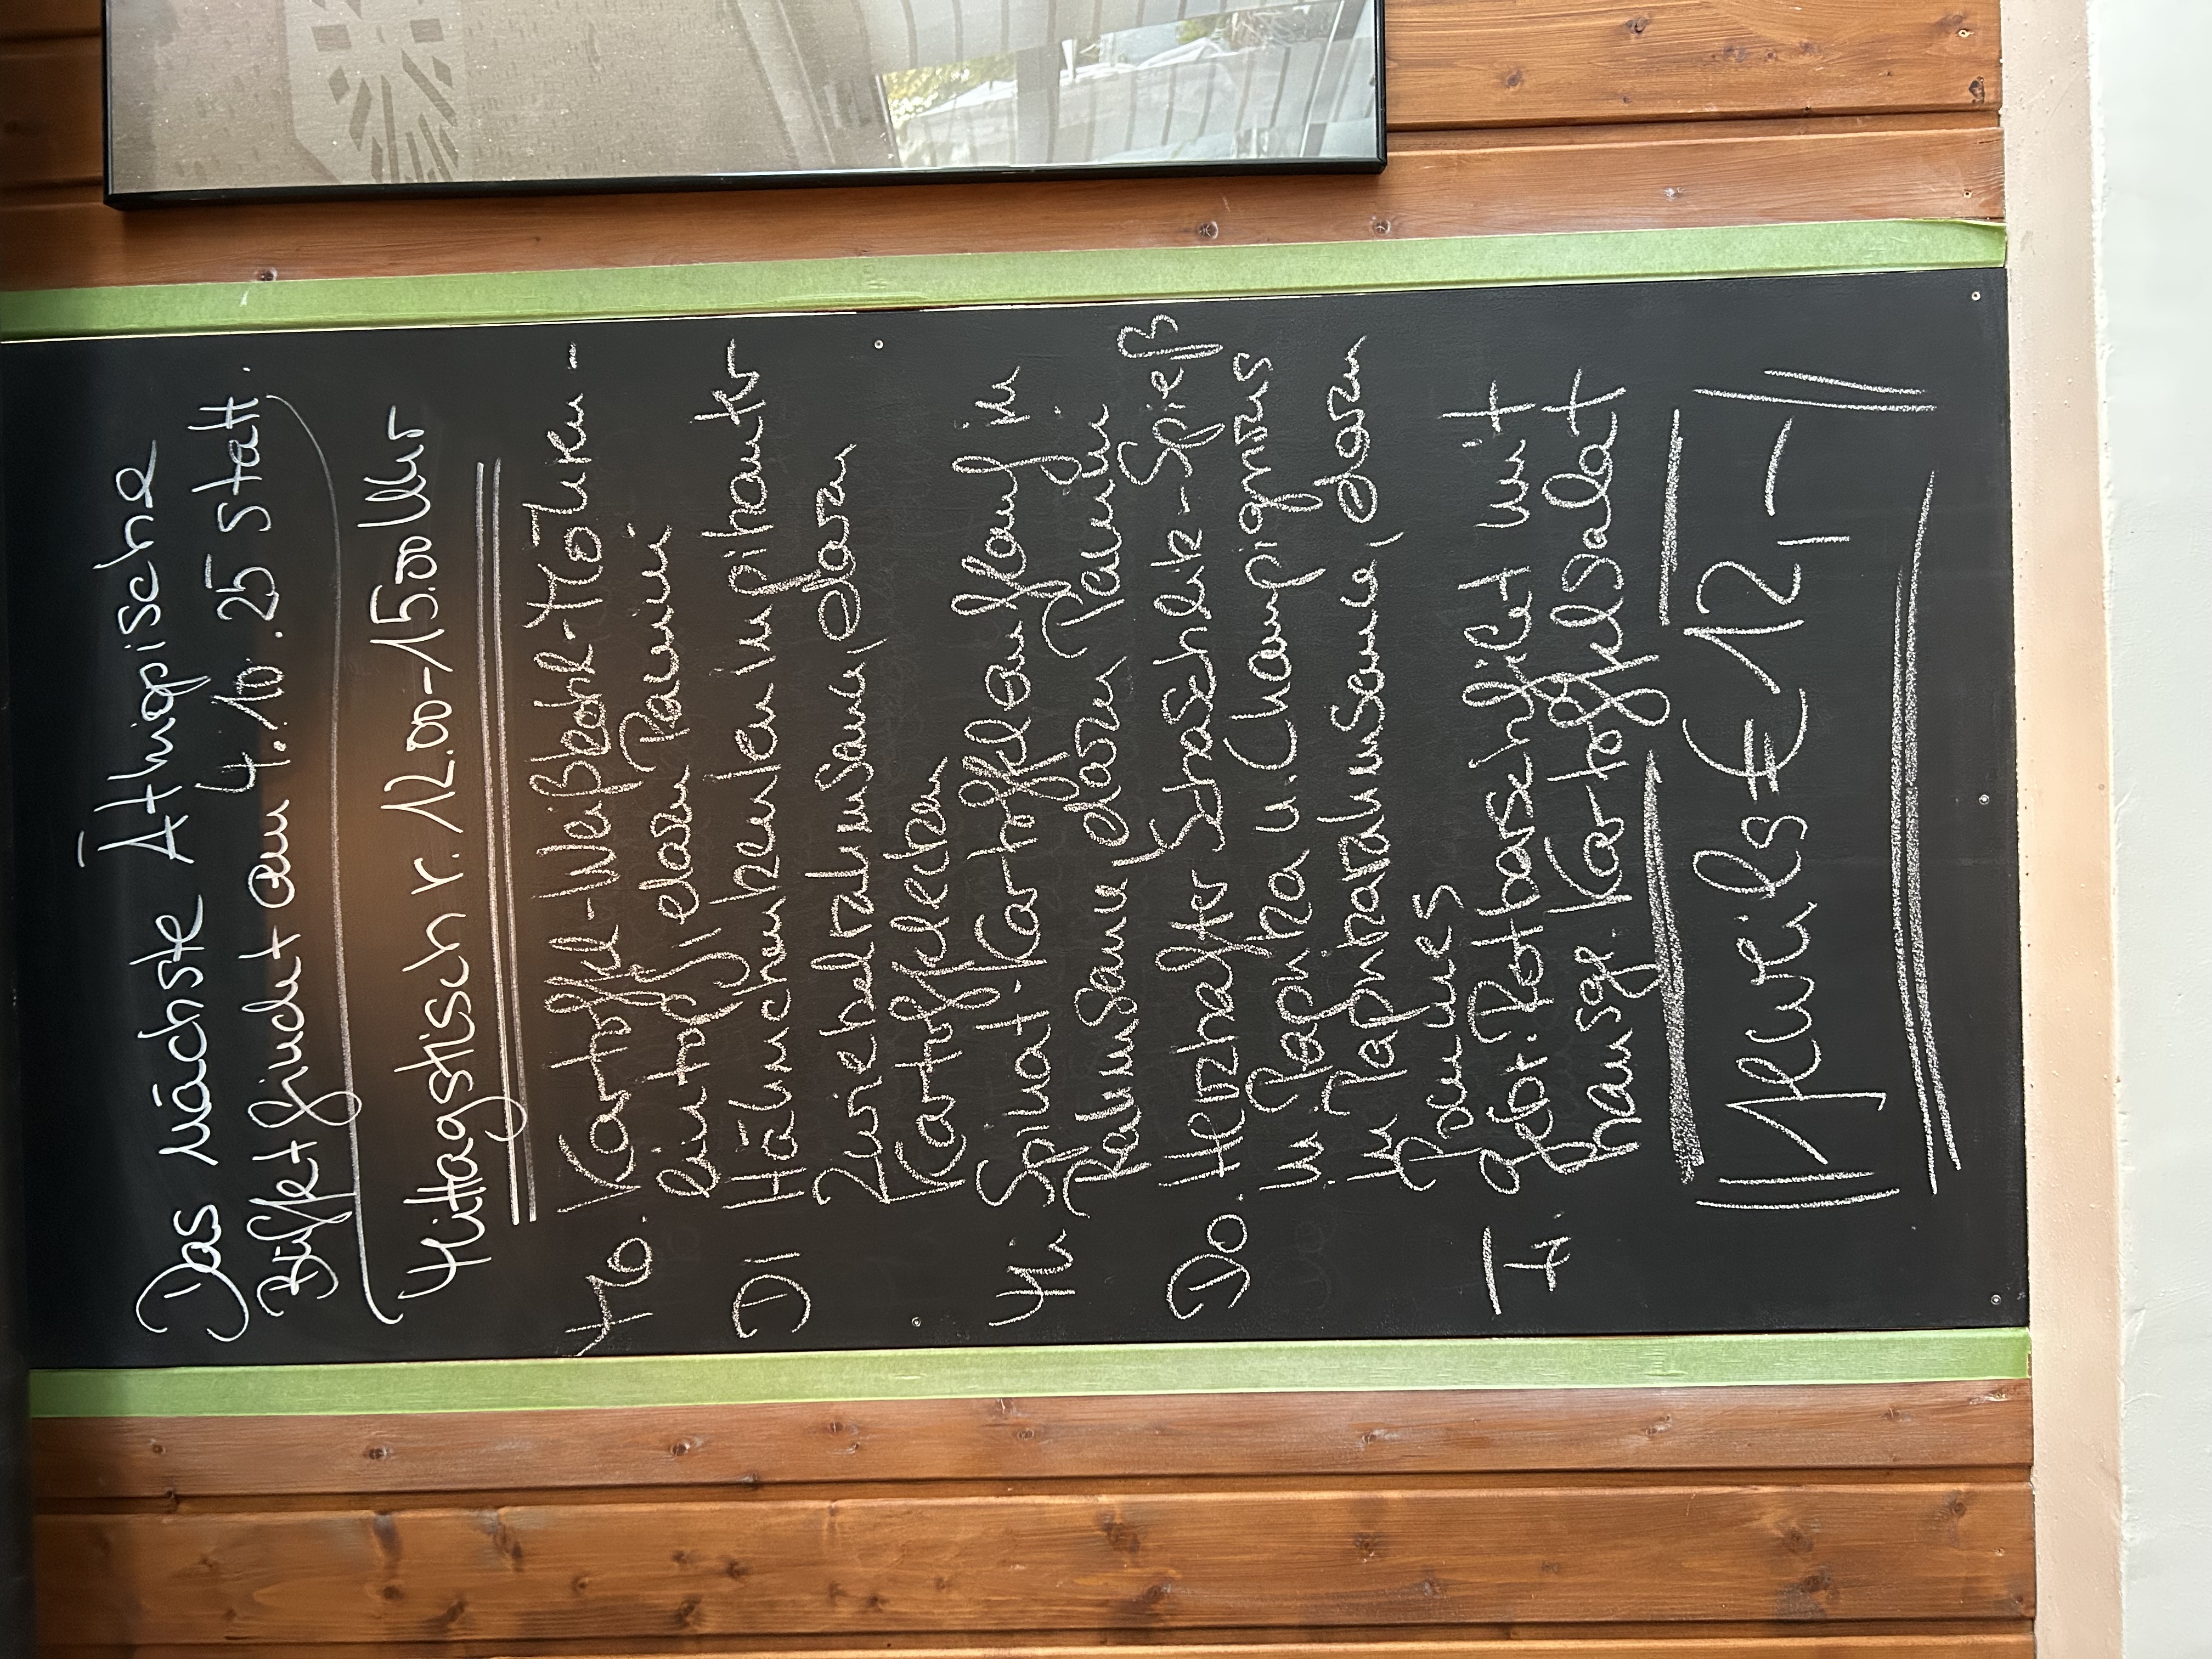 Das nächste Äthiopische
Büffet findet am 4.10.25 statt.
Mittagstisch v. 12.00-15.00 Uhr
Mo. Kartoffel-Weißkohl-Möhren-
eintopf, dazu Pammi
Di Hähnchenkeulen in pikanter
Zwiebelrahmsauce, dazu
Kartoffelecken
Mi Spinat-Kartoffelauflauf in
Rahmsauce, dazu Pammi
Do. Herzhafter Schaschlik-Spieß
m. Paprika u. Champignons
in Paprikarahmsauce, dazu
Pommes
Fr. gebr. Rotbarschfilet mit
hausge. Kartoffelsalat
Jeweils € 12,-